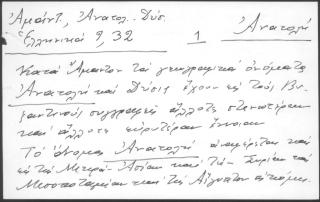 Ἀμάντ., Ἀνατολ. Δύσ. Ἀνατολή
Ἑλληνικά 9, 32 1
Κατά Ἄμαντον τά γεωγραφικά ὀνόματα
Ἀνατολή καί Δύσις ἔχουν εἰς τούς Βυ-
ζαντινούς συγγραφεῖς ἄλλοτε στενωτέραν
καί ἄλλοτε εὐρυτέραν ἔννοιαν
Τό ὄνομα Ἀνατολή ἀναφέρεται καί
εἰς τήν Μικράν Ἀσίαν καί τήν Συρίαν καί
Μεσοποταμίαν καί τήν Αἴγυπτον ἀκόμη.